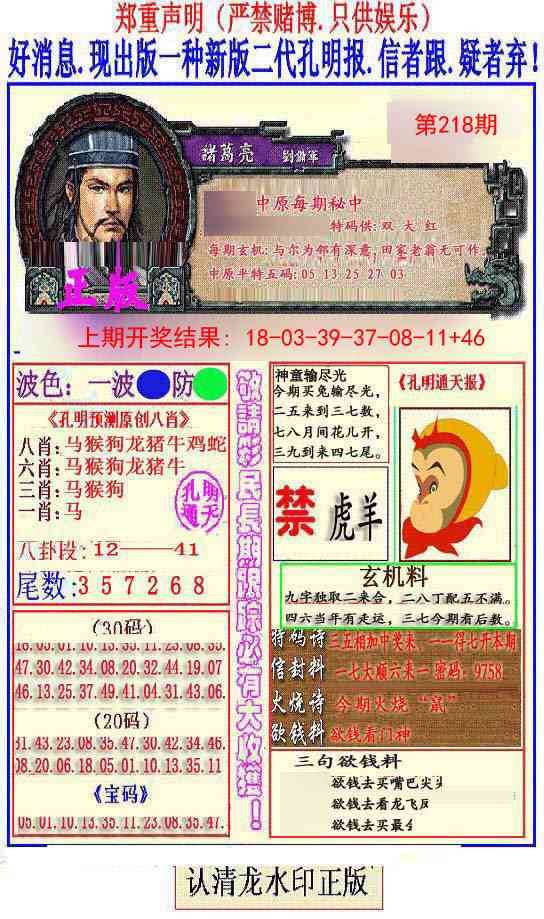 郑重声明（严禁赌博.只供娱乐）
好消息.现出版一种新版二代孔明报.信者跟.疑者弃！
第218期
諸葛亮 劉備軍
中原每期秘中
特码供:双大红
每期玄机:与尔为邻有深意,田家老翁无可作
中原平特五码:05 13 25 27 03
正版
上期开奖结果：18-03-39-37-08-11+46
波色：一波 防
《孔明预测原创八肖》
八肖:马猴狗龙猪牛鸡蛇
六肖:马猴狗龙猪牛
三肖:马猴狗
一肖:马
孔明
通天
八卦段:12——41
尾数:357268
(30码)
18.03.01.10.13.35.11.23.08.35.
47.30.42.34.08.20.32.44.19.07
46.13.25.37.49.41.04.31.43.06.
(20码)
31.43.23.08.35.47.30.42.34.46.
08.20.06.18.05.01.10.13.35.11
《宝码》
05.01.10.13.35.11.23.08.35.47.
敬請彩民長期跟踪必有大收獲！
神童输尽光
今期买兔输尽光，
二五来到三七数，
七八月间花儿开，
三九到来四七尾。
《孔明通天报》
禁 虎羊
玄机料
九字独取二来合，二八丁配五不满。
四六当年有走运，三七今期看后数。
特码诗 三五相加中奖来，一一得七开本期
信封料 一七大顺六来一 密码：9758
火烧诗 今期火烧“鼠”
欲钱料 欲钱看门神
三句欲钱料
欲钱去买嘴巴尖
欲钱去看龙飞
欲钱去买最
认清龙水印正版